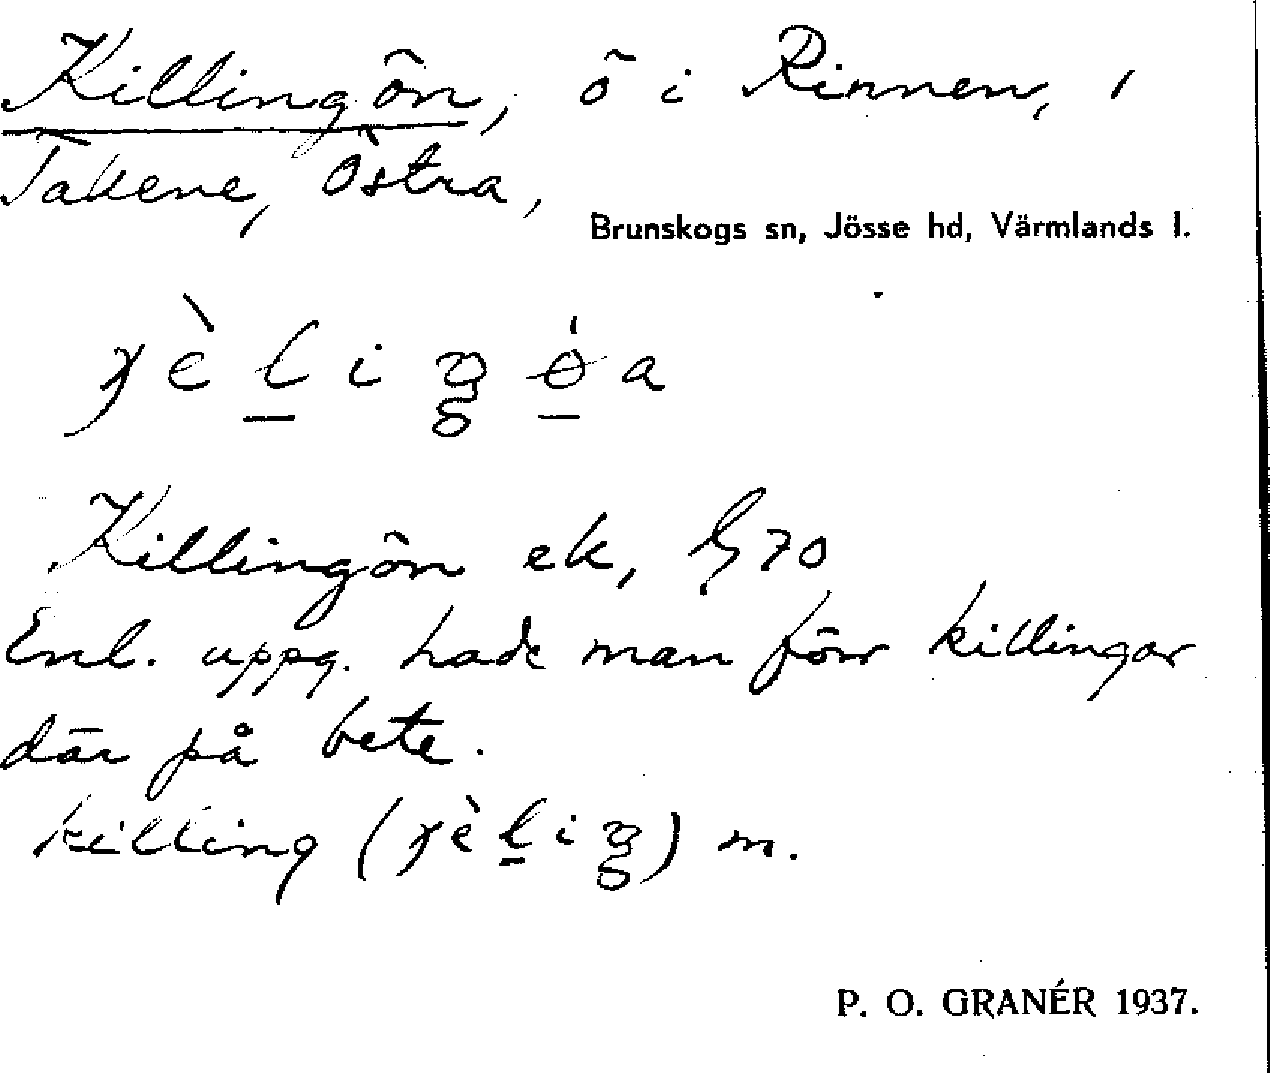 Killingön, ö i Rinnen, 1
Takene, Östra,
Brunskogs sn, Jösse hd, Värmlands l.
Killingön ek, G 70
Enl. uppg. hade man förr killingar
där på bete.
killing ( ) m.
P. O. GRANÉR 1937.